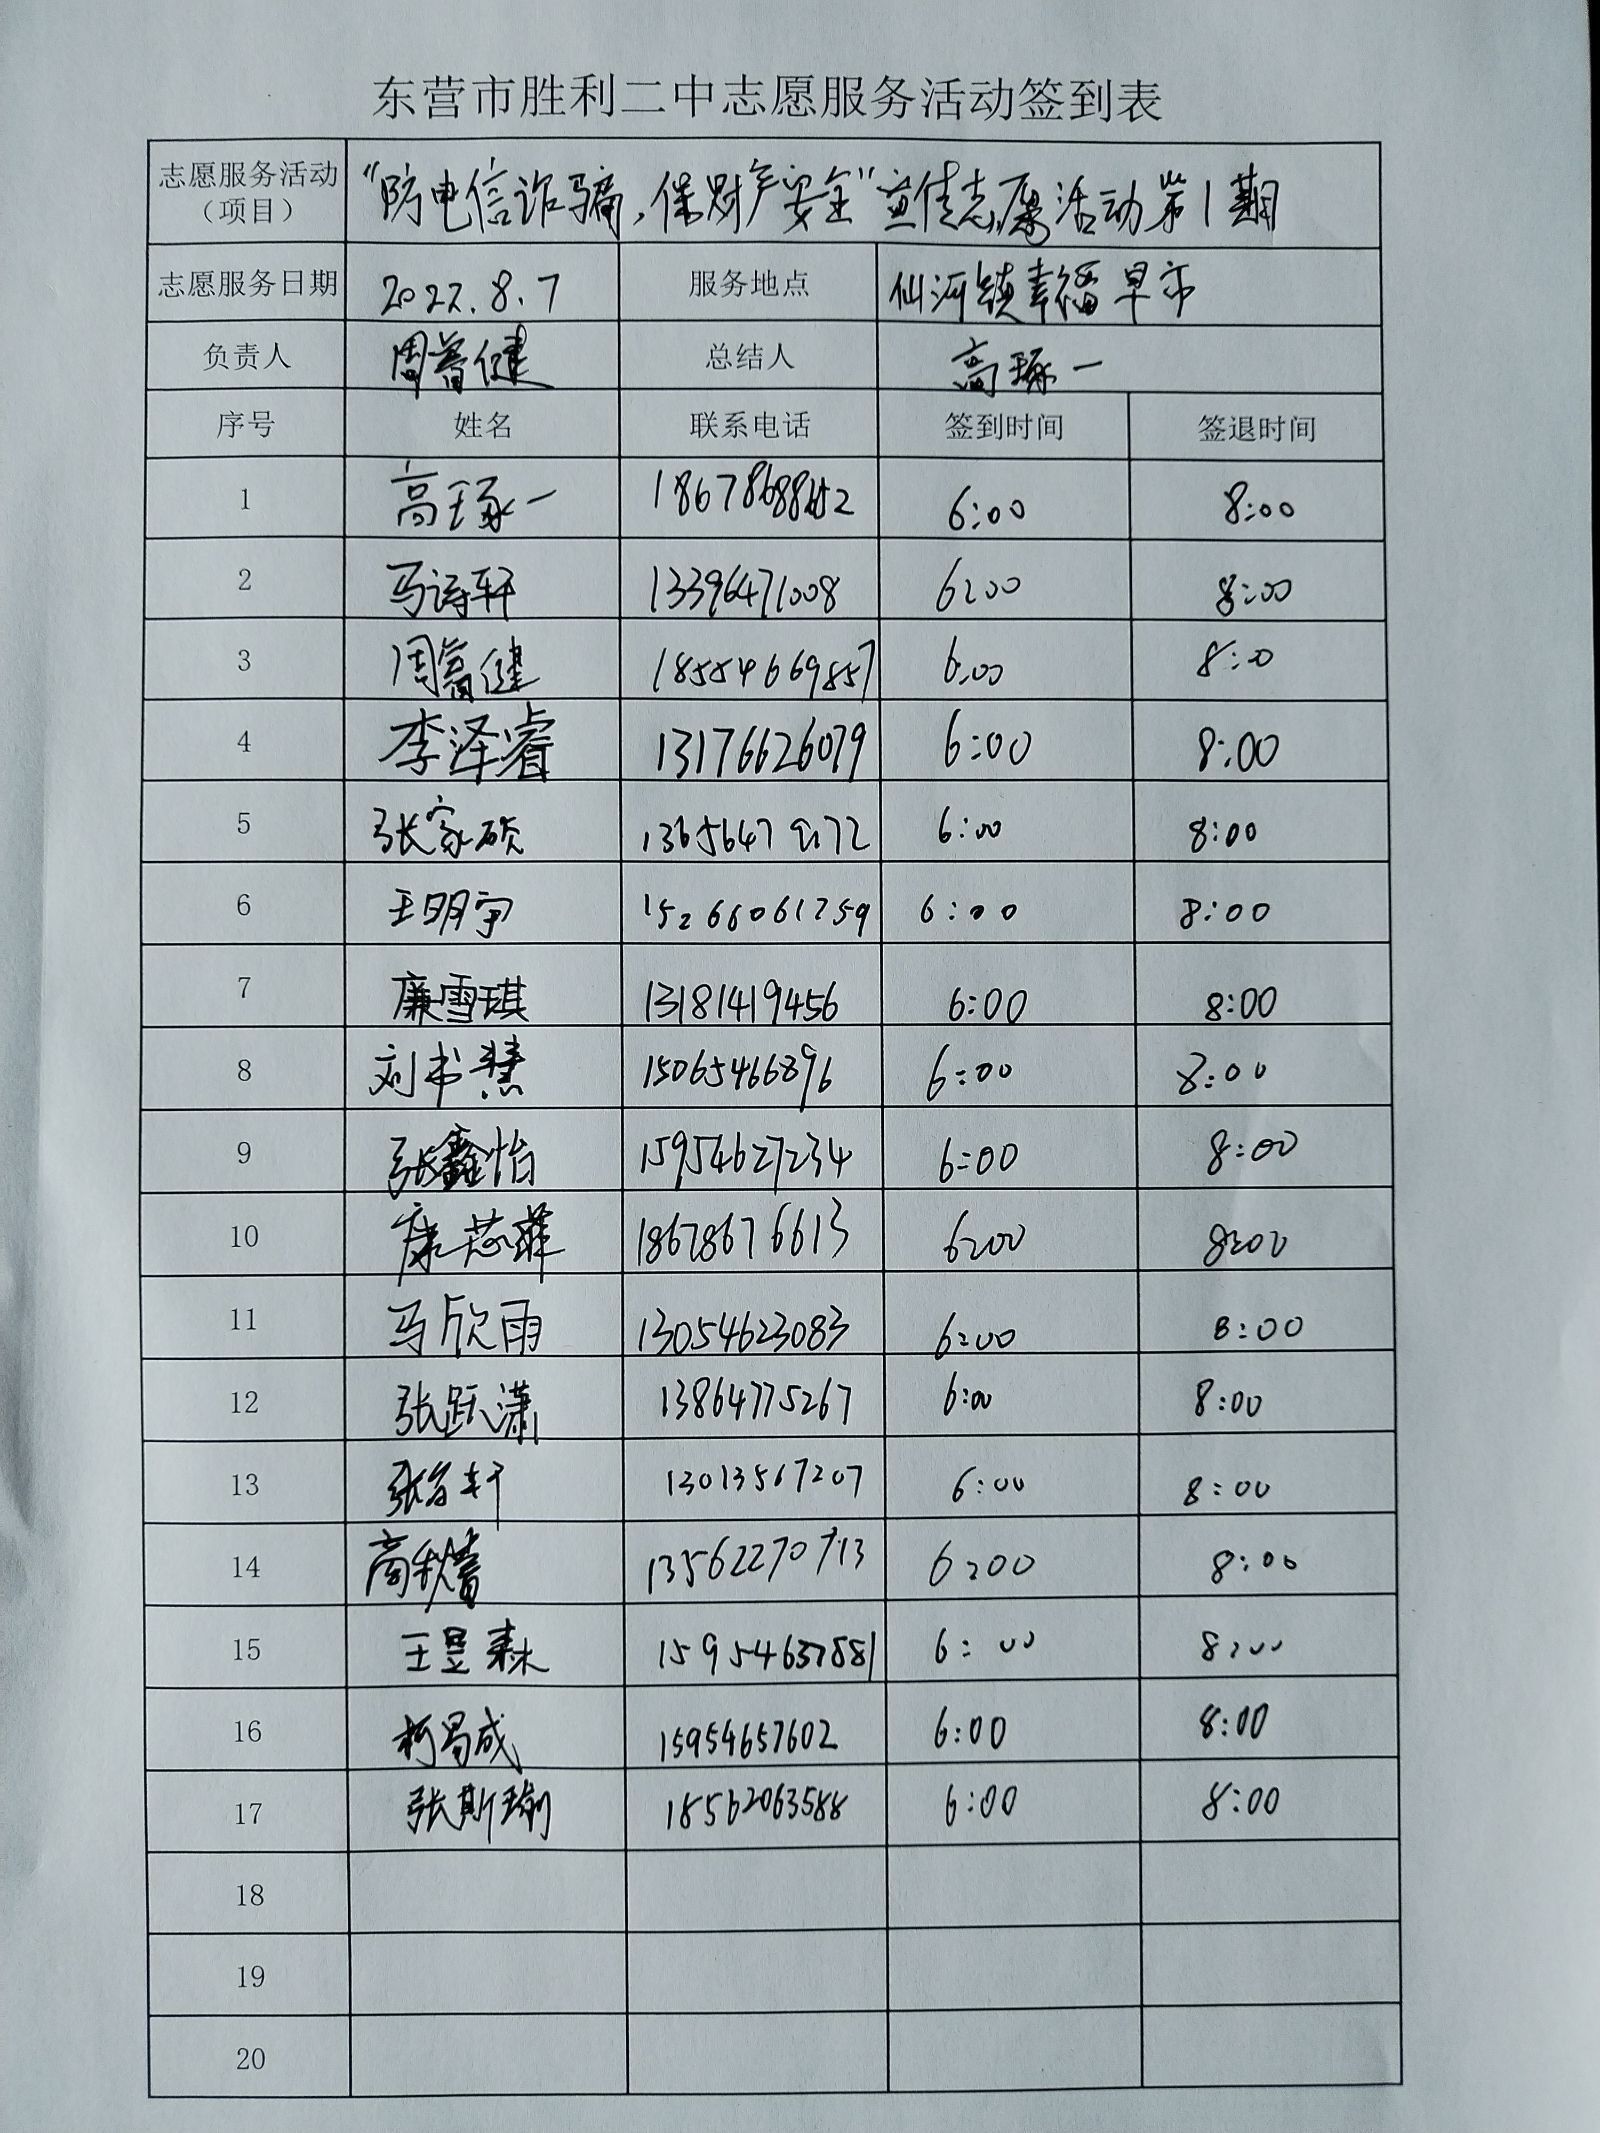 东营市胜利二中志愿服务活动签到表
志愿服务活动（项目） “防电信诈骗，保财产安全”宣传志愿活动第1期
志愿服务日期 2022.8.7 服务地点 仙河镇幸福早市
负责人 周 健 总结人 高琢一
序号 姓名 联系电话 签到时间 签退时间
1 高琢一 6:00 8:00
2 马诗轩 13396471008 6:00 8:00
3 周 健 18554669857 6:00 8:00
4 李泽睿 13176626079 6:00 8:00
5 张家硕 6:00 8:00
6 王明宇 15266061259 6:00 8:00
7 廉雪琪 13181419456 6:00 8:00
8 刘书慧 15065466896 6:00 8:00
9 张鑫怡 15954627234 6:00 8:00
10 康芯菲 18678676613 6:00 8:00
11 马欣雨 13054623083 6:00 8:00
12 张跃潇 13864775267 6:00 8:00
13 张 轩 13013567207 6:00 8:00
14 商秋 13562270713 6:00 8:00
15 王昱森 15954657881 6:00 8:00
16 柯昌成 15954657602 6:00 8:00
17 张斯瑜 18562063588 6:00 8:00
18
19
20